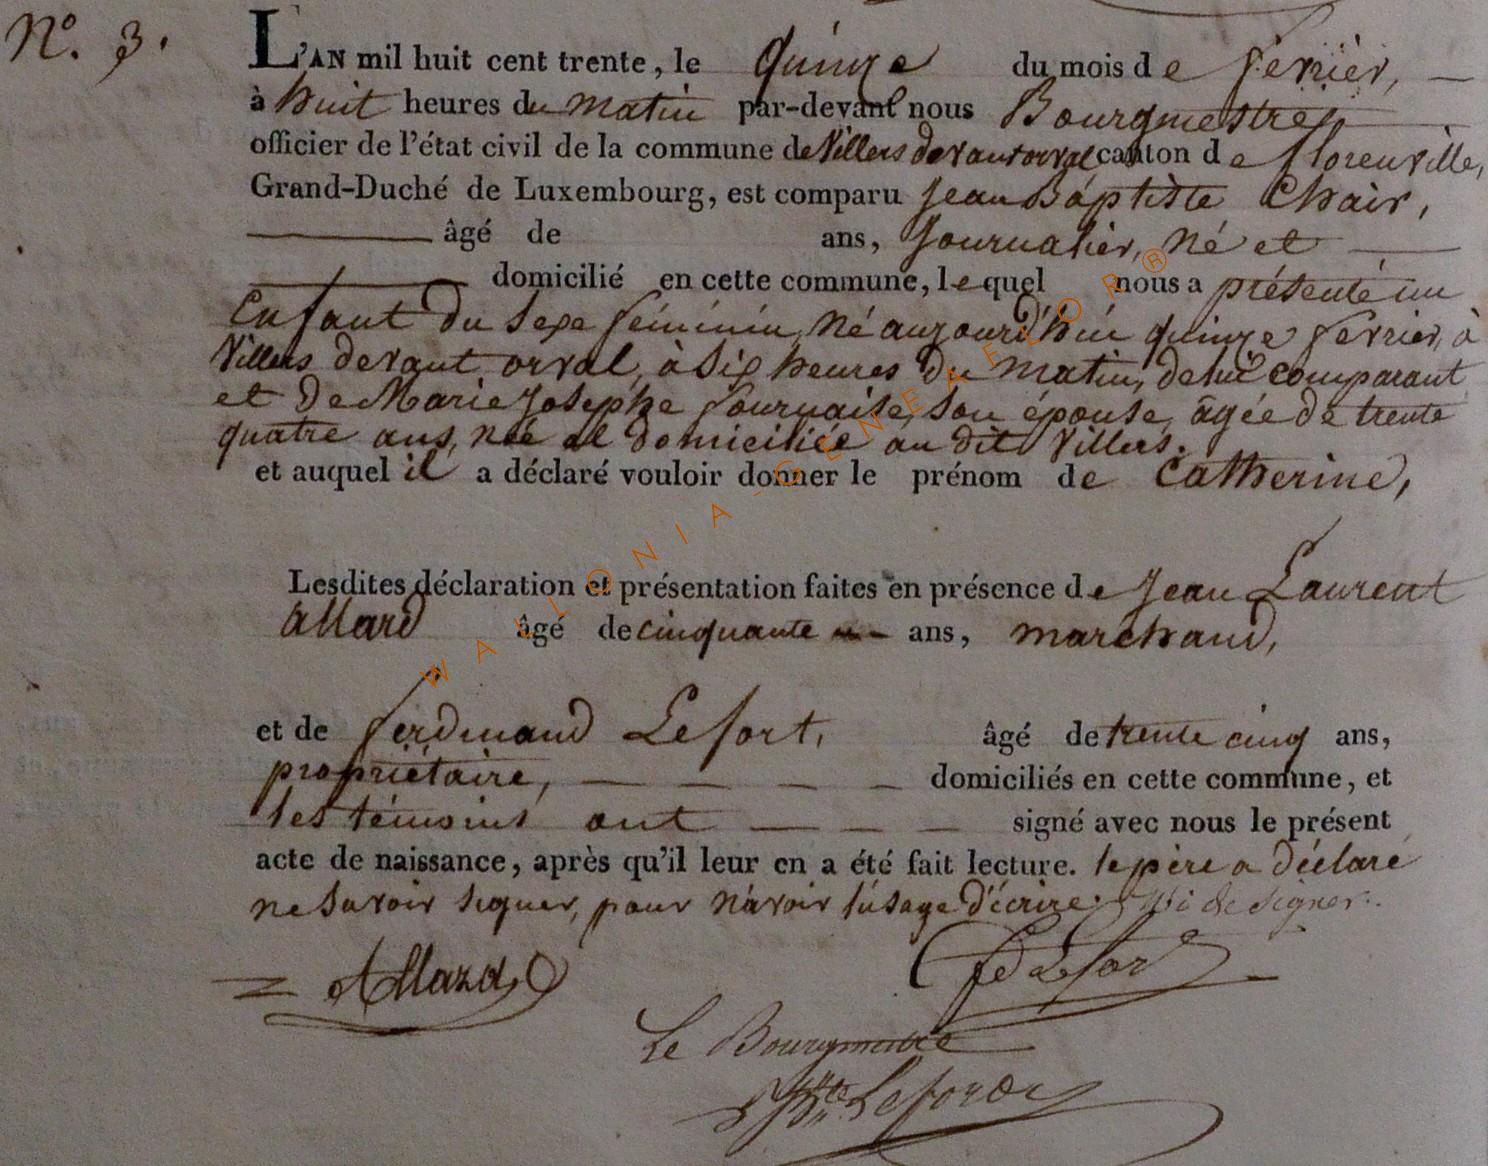 N°. 3.
L'AN mil huit cent trente, le quinze du mois de fevrier,
à huit heures du matin par-devant nous Bourgmestre,
officier de l'état civil de la commune de Villers devant orval, canton de florenville,
Grand-Duché de Luxembourg, est comparu Jean Baptiste Chair,
âgé de ans, Journalier, né et
domicilié en cette commune, lequel nous a présenté un
Enfant du sexe féminin, né aujourd'hui quinze fevrier, à
Villers devant orval, à six heures du matin, de lui comparant
et de Marie Josephe fournaise, son épouse, âgée de trente
quatre ans, née et domiciliée au dit Villers.
et auquel il a déclaré vouloir donner le prénom de Catherine,
Lesdites déclaration et présentation faites en présence de Jean Laurent
allard âgé de cinquante ans, marchand,
et de ferdinand Lefort, âgé de trente cinq ans,
propriétaire, domiciliés en cette commune, et
les témoins ont signé avec nous le présent
acte de naissance, après qu'il leur en a été fait lecture. le père a déclaré
ne savoir signer, pour n'avoir l'usage d'écrire, ni de signer.
Allard
fd Lefort
Le Bourgmestre
Lefort
WALLONIA-GENEAFLOR®